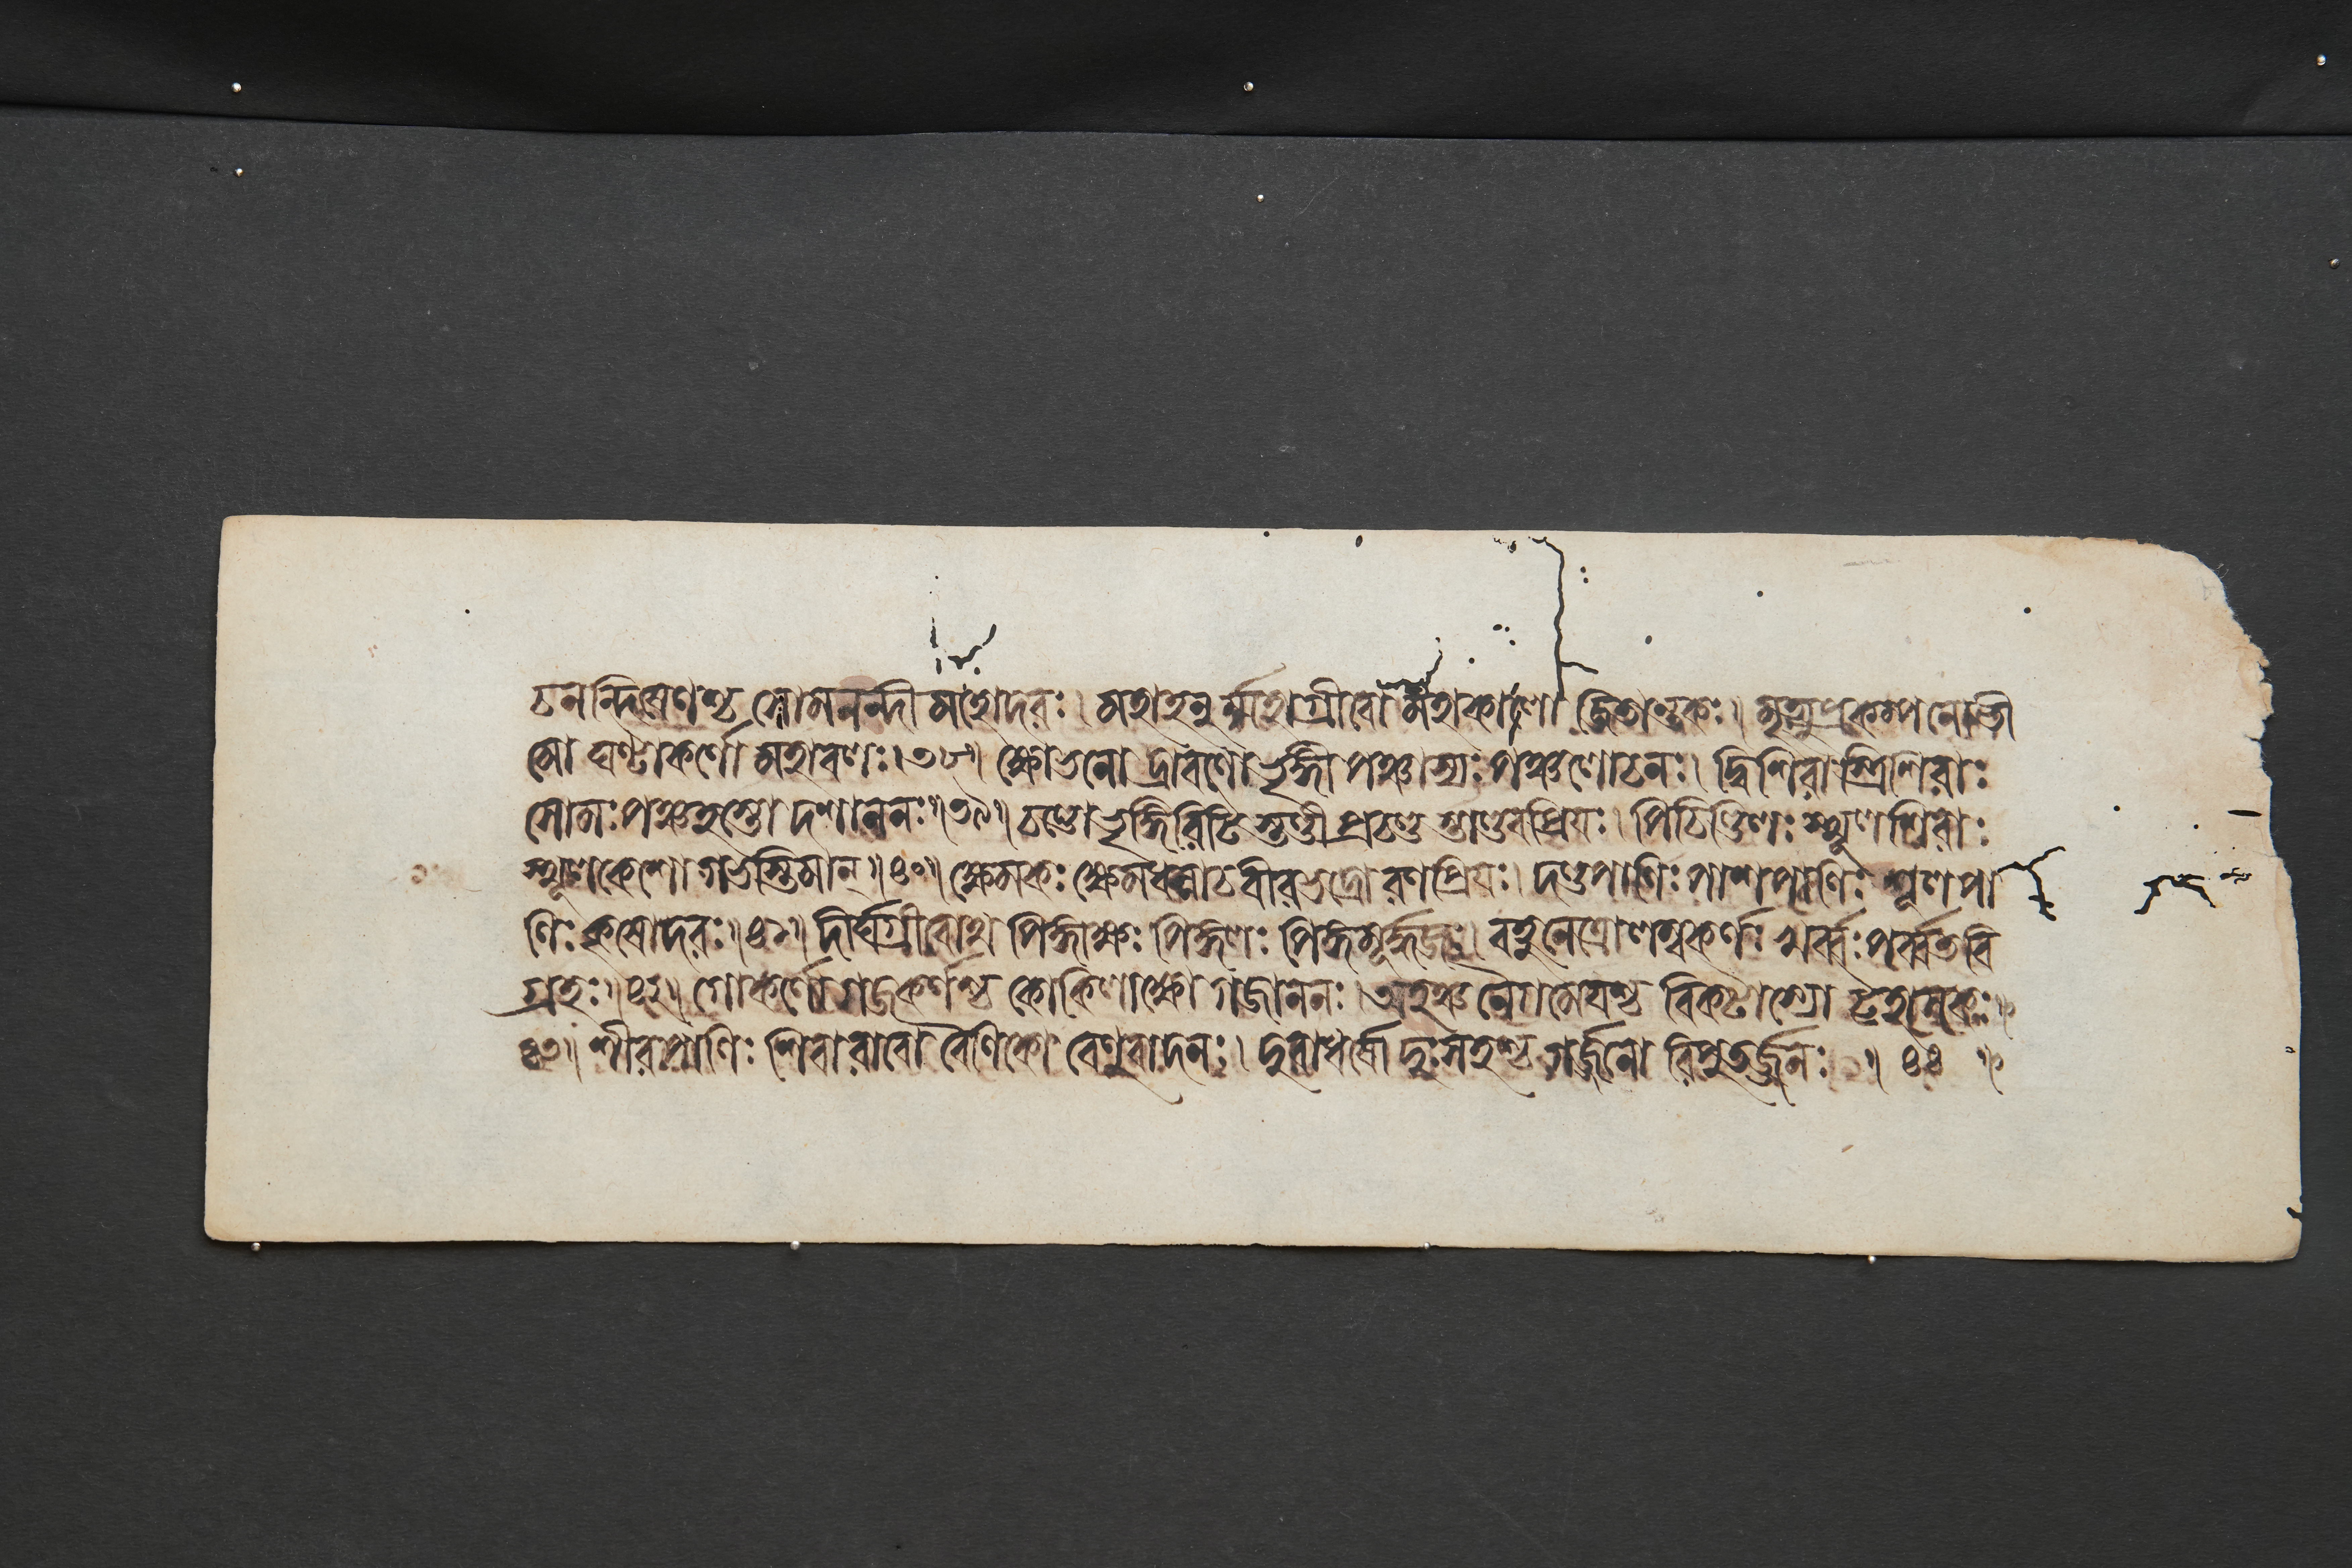 চনন্দিষেণশ্চ সোমনন্দী মহোদরঃ। মহাহনুর্ম্মহাগ্রীবো মহাকালো জিতান্তকঃ। মৃত্যুপ্রকম্পনো ভী
মো ঘণ্টাকর্ণো মহাবলঃ।৩৮॥ ক্ষোভনো দ্রাবণো ভৃঙ্গী পঞ্চাস্যঃ পঞ্চলোচনঃ। দ্বিশিরাস্ত্রিশিরাঃ
সোমঃ পঞ্চহস্তো দশাননঃ॥৩৯॥ চণ্ডো ভৃঙ্গিরিটি স্তুণ্ডী প্রচণ্ড স্তাণ্ডবপ্রিয়ঃ। পিচিণ্ডিলঃ স্থূলশিরাঃ
স্থূলকেশো গভস্তিমান্॥৪০॥ ক্ষেমকঃ ক্ষেমধন্বাচ বীরভদ্রো রণপ্রিয়ঃ। দণ্ডপাণিঃ পাশপাণিঃ শূলপা
ণিঃ কৃষোদরঃ॥৪১॥ দীর্ঘগ্রীবোথ পিঙ্গাক্ষঃ পিঙ্গলঃ পিঙ্গমূর্দ্ধজঃ॥ বহুনেত্রো লম্বকর্ণঃ খর্ব্বঃ পর্ব্বতবি
গ্রহঃ॥৪২॥ গোকর্ণো গজকর্ণশ্চ কোকিলাক্ষো গজাননঃ। অহঞ্চ নৈগমেয়শ্চ বিকটাস্যো ট্টহাসকঃ॥
৪৩॥ শীরপাণিঃ শিবারাবো বৈণিকো বেণুবাদনঃ। দুরাধর্ষো দুঃসহশ্চ গর্জ্জনো রিপুতর্জ্জনঃ ॥ ৪৪ ॥